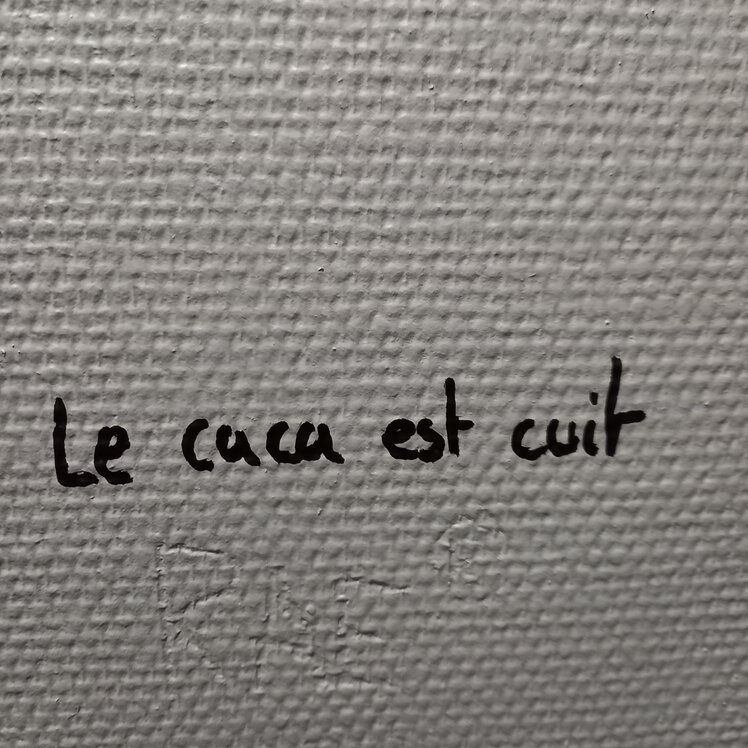 Le caca est cuit